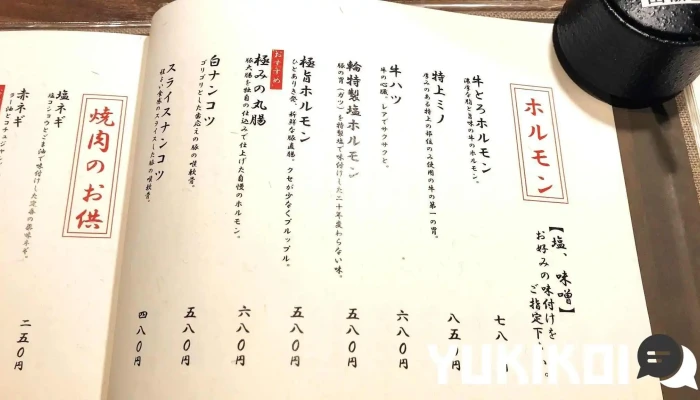 ホルモン
【塩、味噌】
お好みの味付けを
ご指定下
牛とろホルモン
濃厚な脂と旨味の牛のホルモン。
七八
特上ミノ
厚みのある特上の部位のみ使用の牛の第一の胃。
八五
牛ハツ
牛の心臓。レアでサクサクと。
六八〇円
輪特製塩ホルモン
豚の胃(ガツ)を特製塩で味付けした二十年変わらない味。
五八〇円
極旨ホルモン
ひと手間かき処。新鮮な豚直腸。クセが少なくプルップル。
五八〇円
おすすめ
極みの丸腸
豚大腸を独自の仕込みで仕上げた自慢のホルモン。
六八〇円
白ナンコツ
ゴリゴリとした歯応えの豚の喉軟骨。
五八〇円
スライスナンコツ
程よい食感のスライスした豚の喉軟骨。
四八〇円
焼肉のお供
塩ネギ
塩コショウとごま油で味付けした定番の薬味ネギ。
二五〇円
赤ネギ
YUKIKOI